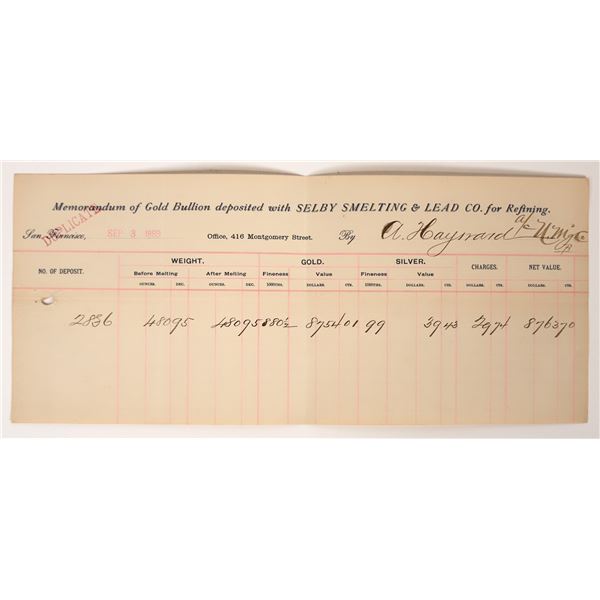 Memorandum of Gold Bullion deposited with SELBY SMELTING & LEAD CO. for Refining.
DUPLICATE
San Francisco, SEP 3 1889 Office, 416 Montgomery Street. By A. Hayward a/c
NO. OF DEPOSIT. WEIGHT. GOLD. SILVER. CHARGES. NET VALUE.
Before Melting After Melting Fineness Value Fineness Value
OUNCES. DEC. OUNCES. DEC. 1000THS DOLLARS. CTS. 1000THS DOLLARS. CTS. DOLLARS. CTS. DOLLARS. CTS.
2836 480 95 480 95 880½ 8754 01 99 39 43 29 74 8763 70